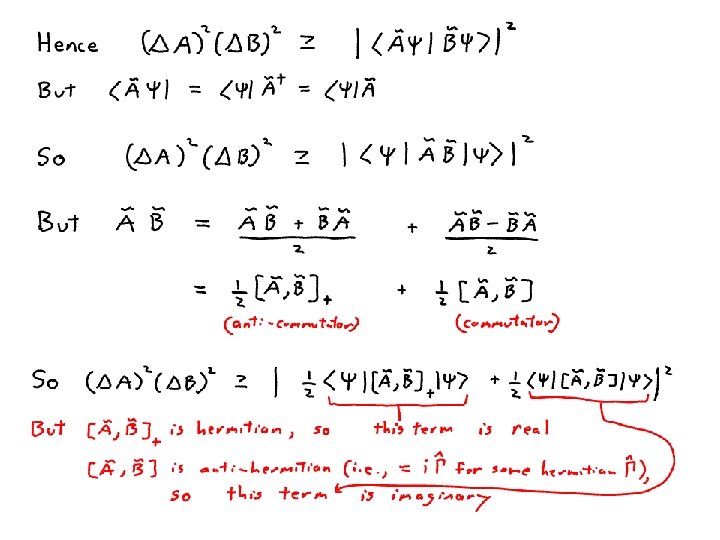 Hence (ΔA)² (ΔB)² ≥ |⟨ÃΨ|B̃Ψ⟩|²
But ⟨ÃΨ| = ⟨Ψ| Æ = ⟨Ψ|Ã
So (ΔA)² (ΔB)² ≥ |⟨Ψ|ÃB̃|Ψ⟩|²
But ÃB̃ = (ÃB̃ + B̃Ã)/2 + (ÃB̃ − B̃Ã)/2
= ½ [Ã,B̃]₊ + ½ [Ã,B̃]
(anti-commutator) (commutator)
So (ΔA)² (ΔB)² ≥ | ½ ⟨Ψ|[Ã,B̃]₊|Ψ⟩ + ½ ⟨Ψ|[Ã,B̃]|Ψ⟩|²
But [Ã,B̃]₊ is hermition, so this term is real
[Ã,B̃] is anti-hermition (i.e., = iΓ̂ for some hermition Γ̂),
so this term is imaginary